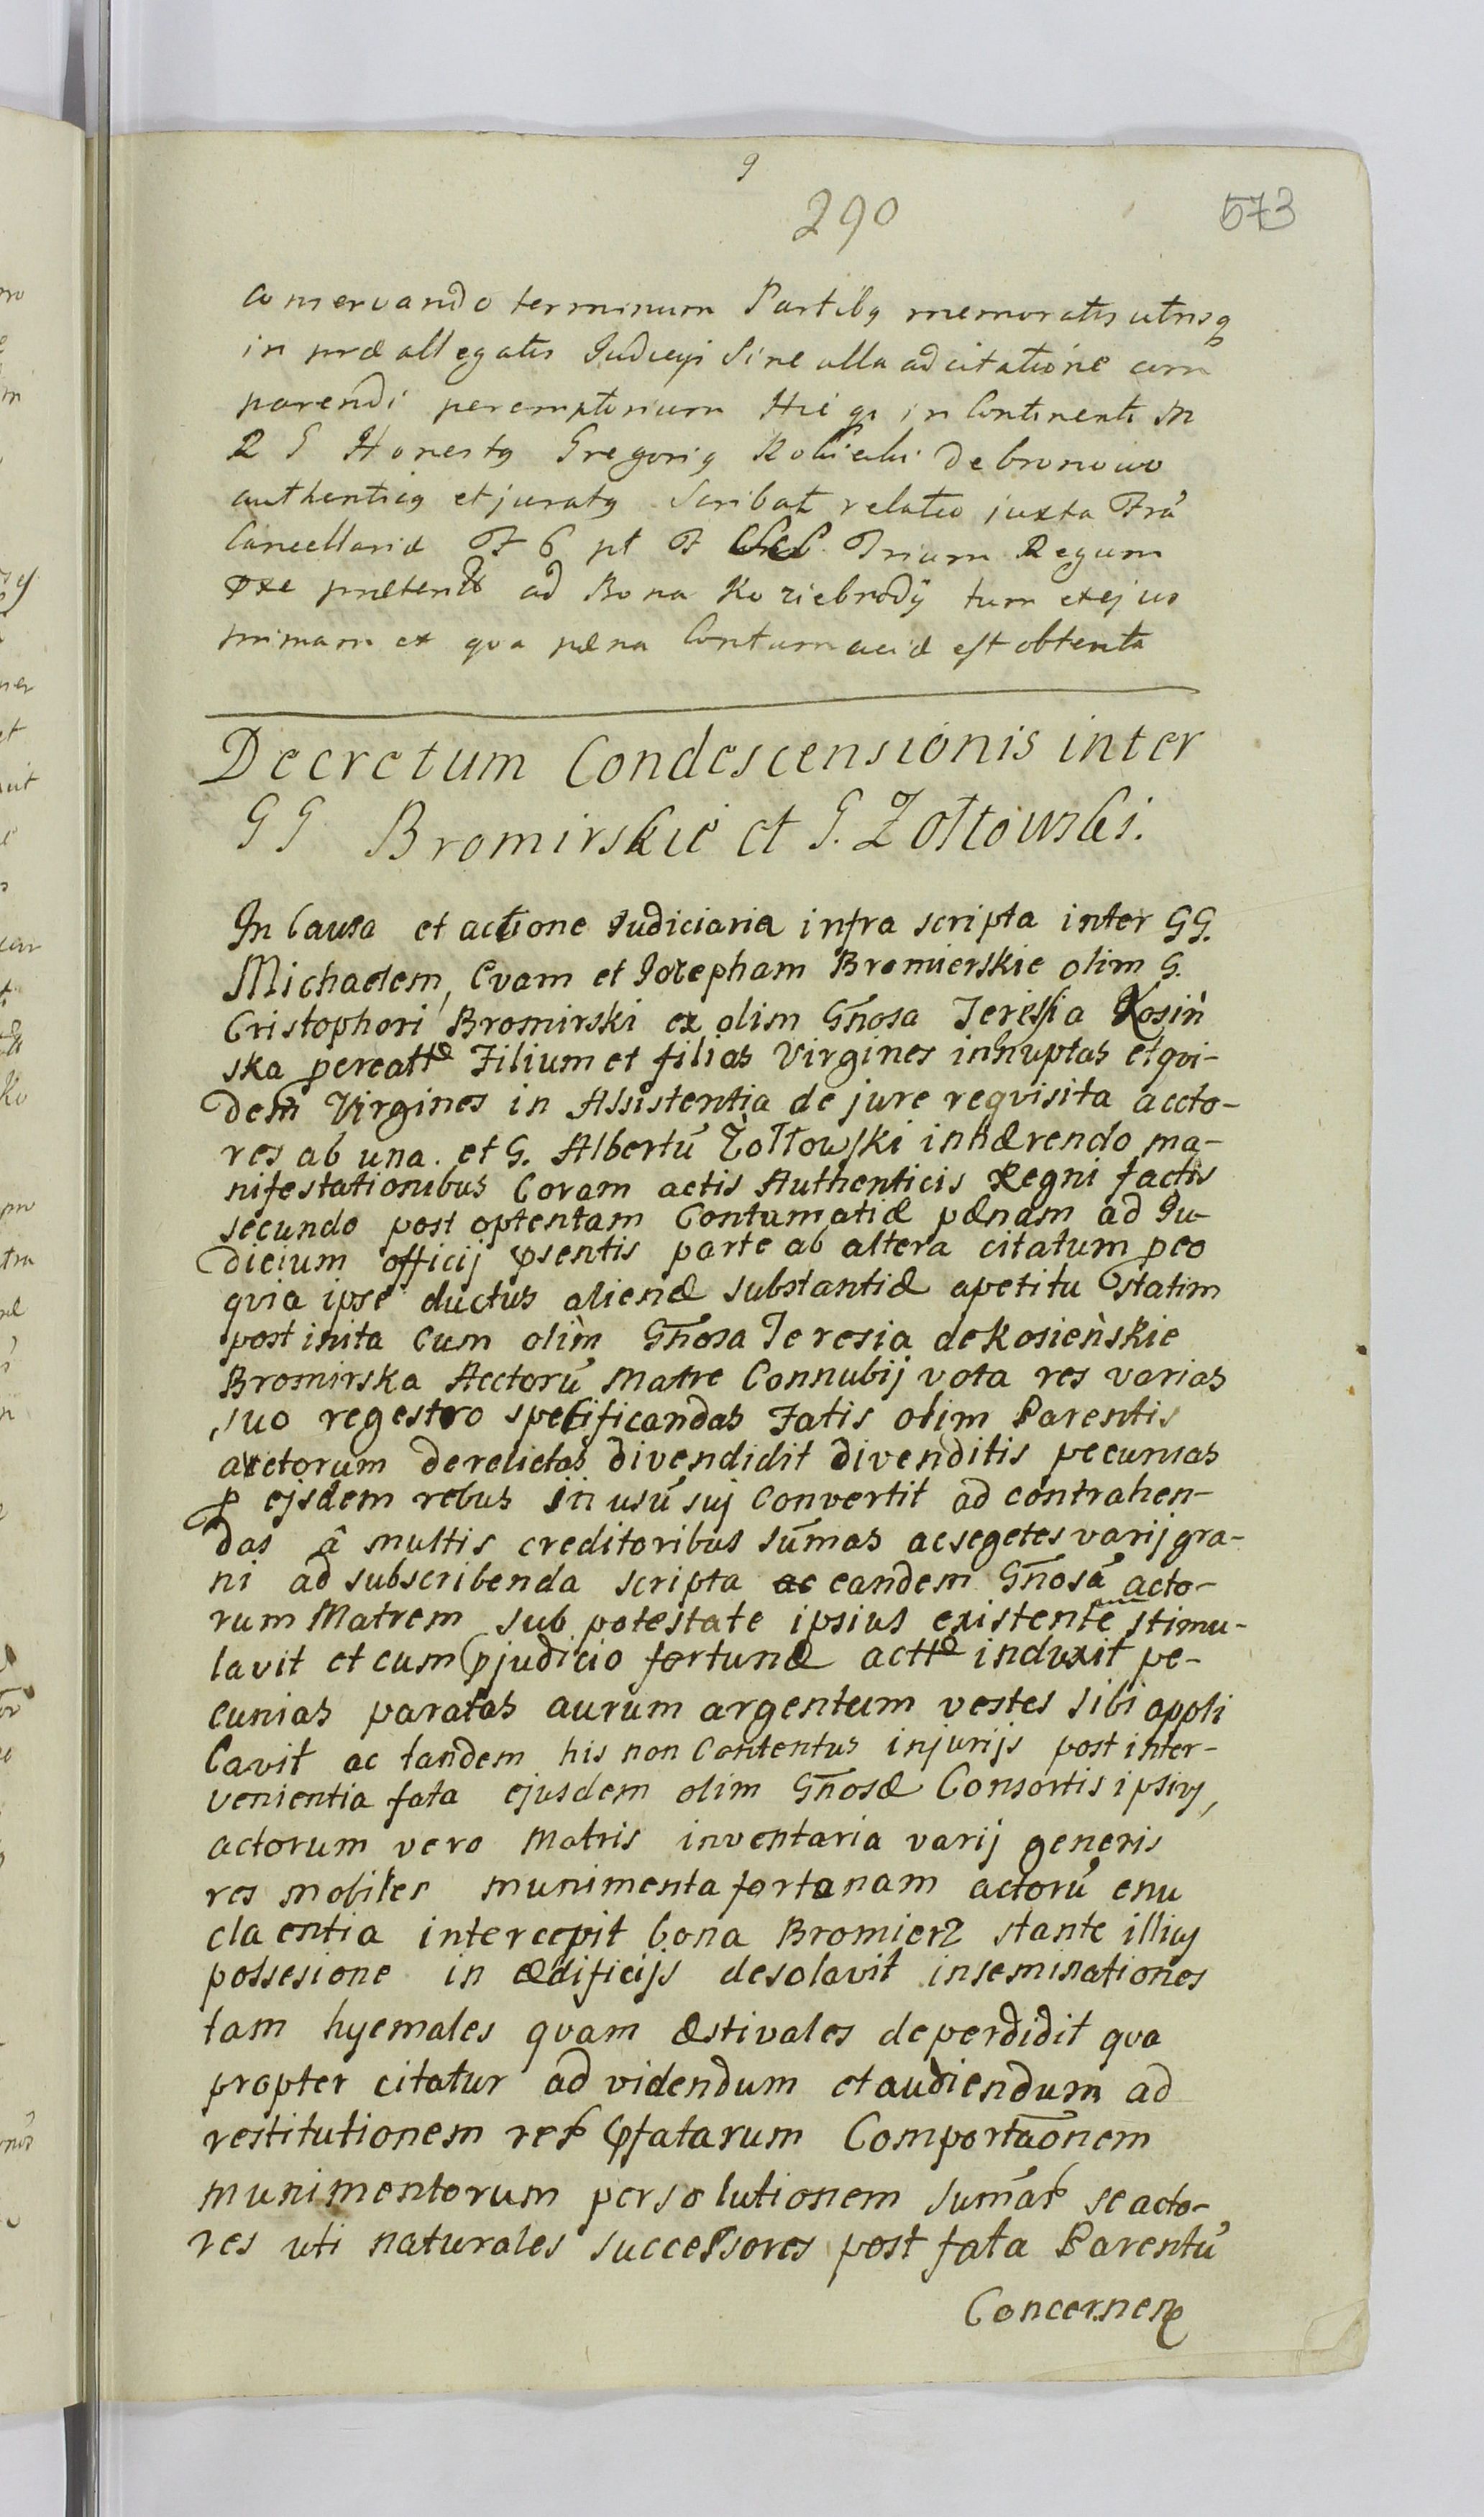 9
290
573
Conservando terminum Partibq memoratis utrisq
in præallegatis Judicys Sine ulla adcitatione com
parendi peremptorium Hic qs in Continenti M
R G Honestq Gregoriq de bronowo
authenticq et juratq Scribat relatio juxta Fra
Cancellariæ F 6 pt F Trium Regum
præterit ad Bona Koziebrody tum ex ejus
primam ex qva pæna Contumaciæ est obtenta
Decretum Condescensionis inter
GG Bromirskie et G. Zołtowski.
In Causa et actione Judiciaria infra scripta inter GG.
Michaelem, Evam et Josepham Bromierskie olim G.
Cristophori Bromirski ex olim Gnosa Teressia Kosiń
ska pereattæ Filium et filias Virgines innuptas et qvi-
dem Virgines in Assistentia de jure reqvisita accto-
res ab una. et G. Albertu Żołtowski inhærendo ma-
nifestationibus Coram actis Authenticis Regni factis
secundo post optentam Contumatiæ pænam ad Ju-
dicium officij psentis parte ab altera citatum peo
qvia ipse ductus alienæ substantiæ apetitu statim
post inita Cum olim Gnosa Teresia de Kosieńskie
Bromirska Acctoru Matre Connubij vota res varias
suo regestro specificandas Fatis olim Parentis
actorum derelictas divendidit divenditis pecunias
p ejsdem rebus in usu suj Convertit ad contrahen-
das â multis creditoribus sumas ac segetes varij gra-
ni ad subscribenda scripta ac eandem Gnosa acto-
rum Matrem sub potestate ipsius existente stimu-
lavit et cum pjudicio fortunæ acttæ induxit pe-
cunias paratas aurum argentum vestes sibi appli
Cavit ac tandem his non Contentus injurijs post inter-
venientia fata ejusdem olim Gnosæ Consortis ipsiq,
actorum vero Matris inventaria varij generis
res mobiles munimenta fortanam actoru enu
claentia intercepit bona Bromierz stante illiq
possesione in ædificijs desolavit inseminationes
tam hyemales qvam æstivales deperdidit qva
propter citatur ad videndum et audiendum ad
restitutionem rer pfatarum Comportaonem
munimentorum persolutionem sumar se acto-
res uti naturales successores post fata Parentu
Concernen